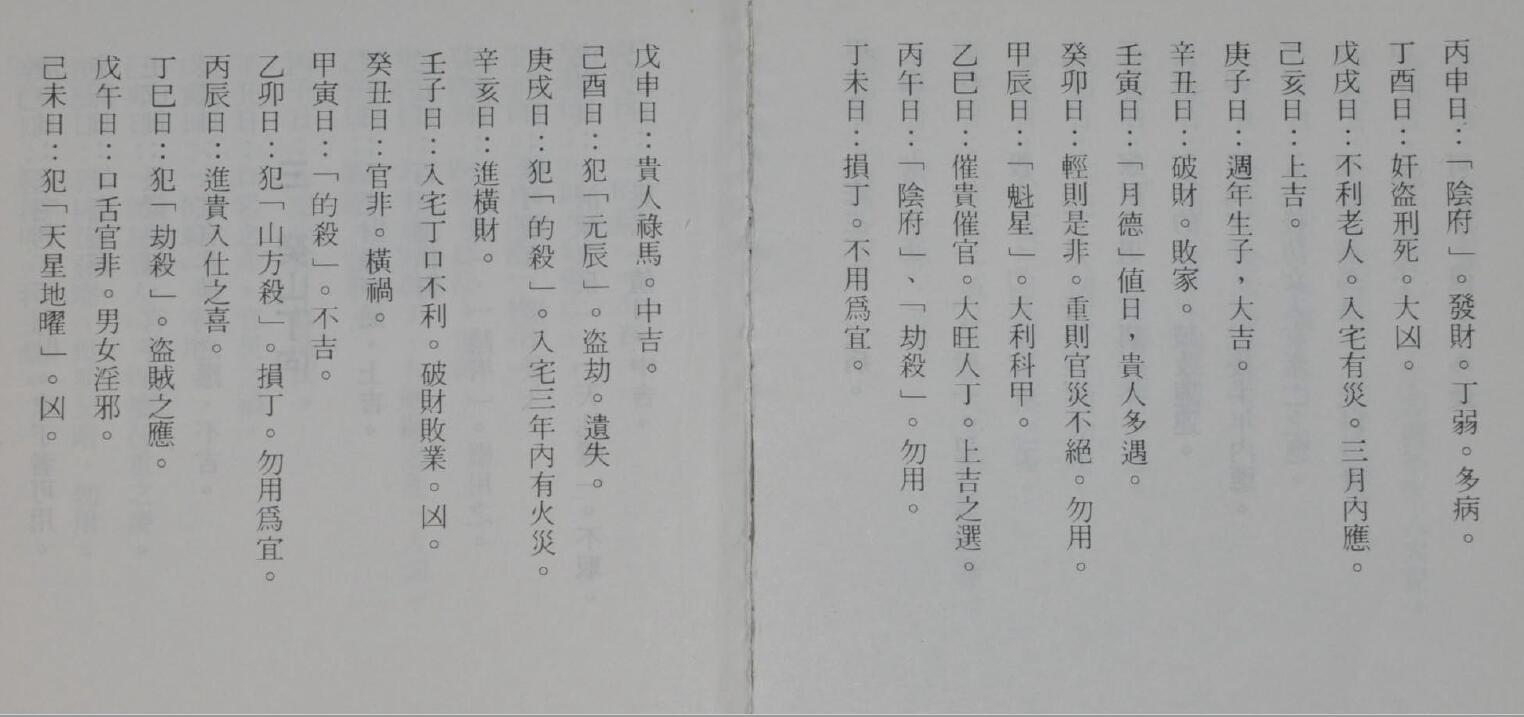 丙申日：「陰府」。發財。丁弱。多病。
丁酉日：奸盗刑死。大凶。
戊戌日：不利老人。入宅有災。三月內應。
己亥日：上吉。
庚子日：週年生子，大吉。
辛丑日：破財。敗家。
壬寅日：「月德」值日，貴人多遇。
癸卯日：輕則是非。重則官災不絕。勿用。
甲辰日：「魁星」。大利科甲。
乙巳日：催貴催官。大旺人丁。上吉之選。
丙午日：「陰府」、「劫殺」。勿用。
丁未日：損丁。不用爲宜。
戊申日：貴人祿馬。中吉。
己酉日：犯「元辰」。盗劫。遺失。
庚戌日：犯「的殺」。入宅三年內有火災。
辛亥日：進橫財。
壬子日：入宅丁口不利。破財敗業。凶。
癸丑日：官非。橫禍。
甲寅日：「的殺」。不吉。
乙卯日：犯「山方殺」。損丁。勿用爲宜。
丙辰日：進貴入仕之喜。
丁巳日：犯「劫殺」。盜賊之應。
戊午日：口舌官非。男女淫邪。
己未日：犯「天星地曜」。凶。